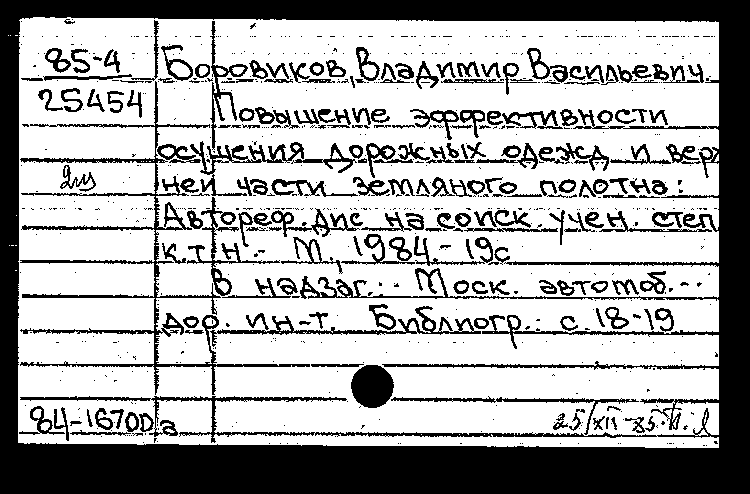 85-4 Боровиков, Владимир Васильевич.
25454 Повышение эффективности
осушения дорожных одежд и верх
ней части земляного полотна:
Автореф. дис на соиск. учен. степ
к.т.н.- М., 1984.- 19с
В надзаг.: Моск. автомоб.--
дор. ин-т. Библиогр.: с. 18-19
84-16700 а 25/XII-85